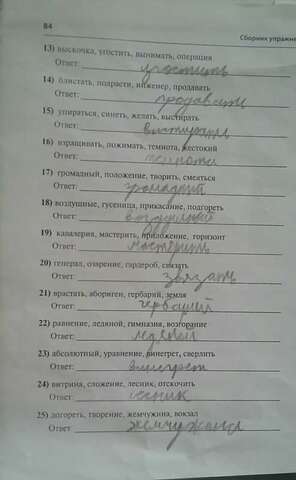 84
Сборник упражне
13) выскочка, угостить, вынимать, операция
Ответ: угостить
14) блистать, подрасти, инженер, продавать
Ответ: продавать
15) упираться, синеть, желать, выстирать
Ответ:
16) взращивать, пожимать, темнота, жестокий
Ответ:
17) громадный, положение, творить, смеяться
Ответ: громадный
18) воздушные, гусеница, прикасание, подгореть
Ответ:
19) кавалерия, мастерить, приложение, горизонт
Ответ: мастерить
20) генерал, озарение, гардероб, связать
Ответ: звязать
21) врастать, абориген, гербарий, земля
Ответ: гербарий
22) равнение, ледяной, гимназия, возгорание
Ответ: ледяной
23) абсолютный, уравнение, винегрет, сверлить
Ответ: винегрет
24) витрина, сложение, лесник, отскочить
Ответ: лесник
25) догореть, творение, жемчужина, вокзал
Ответ жемчужина